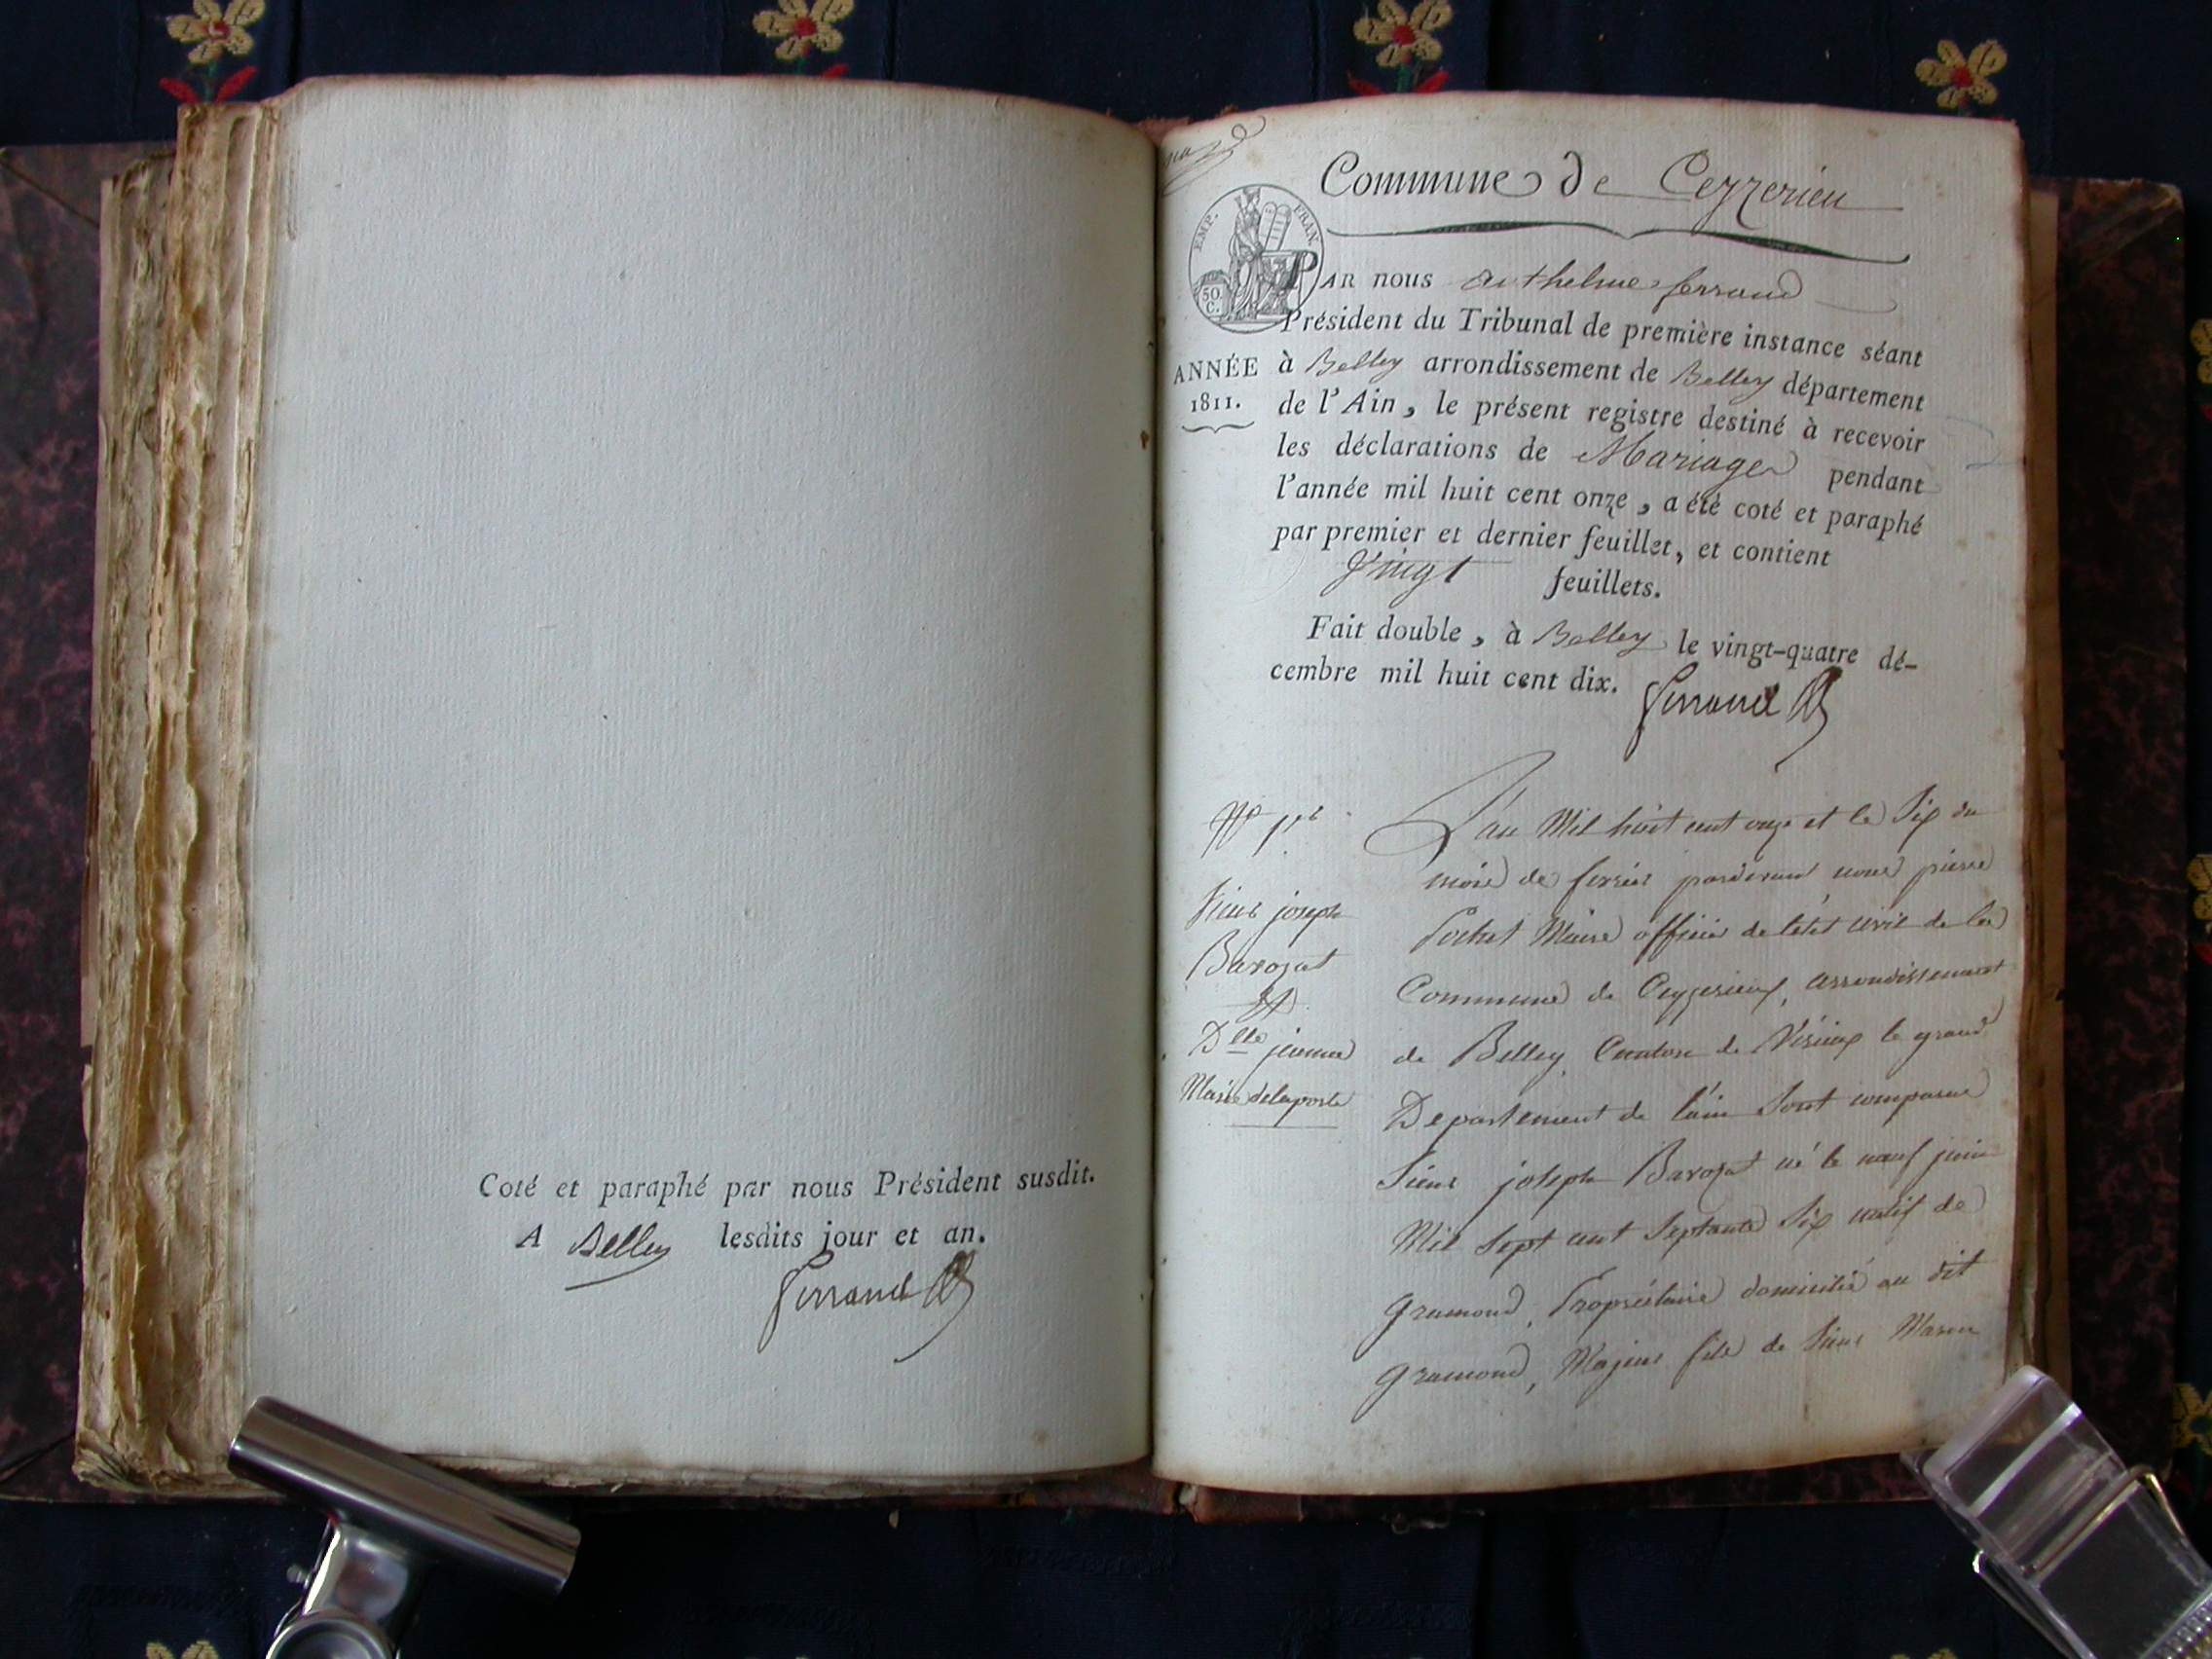 Coté et paraphé par nous Président susdit.
A Belley lesdits jour et an.
Ferrand
Commune de Ceyzerieu
EMP. FRAN.
50. C.
PAR nous anthelme ferrand
Président du Tribunal de première instance séant
ANNÉE
1811.
à Belley arrondissement de Belley département
de l'Ain, le présent registre destiné à recevoir
les déclarations de Mariages pendant
l'année mil huit cent onze, a été coté et paraphé
par premier et dernier feuillet, et contient
Vingt feuillets.
Fait double, à Belley le vingt-quatre dé-
cembre mil huit cent dix.
Ferrand
No 1er
Sieur joseph
Barozat
Et
Dlle jeanne
Marie delaporte
L'an Mil huit cent onze et le Six du
mois de fevrier pardevant nous pierre
Pochet Maire officier de letat civil de la
Commune de Ceyzerieux, arrondissement
de Belley, Canton de Virieux le grand
Departement de l'ain Sont comparus
Sieur joseph Barozat né le neuf juin
Mil Sept cent Septante Six natif de
gramond, Propriétaire domicilié au dit
gramond, Majeur fils de Sieur